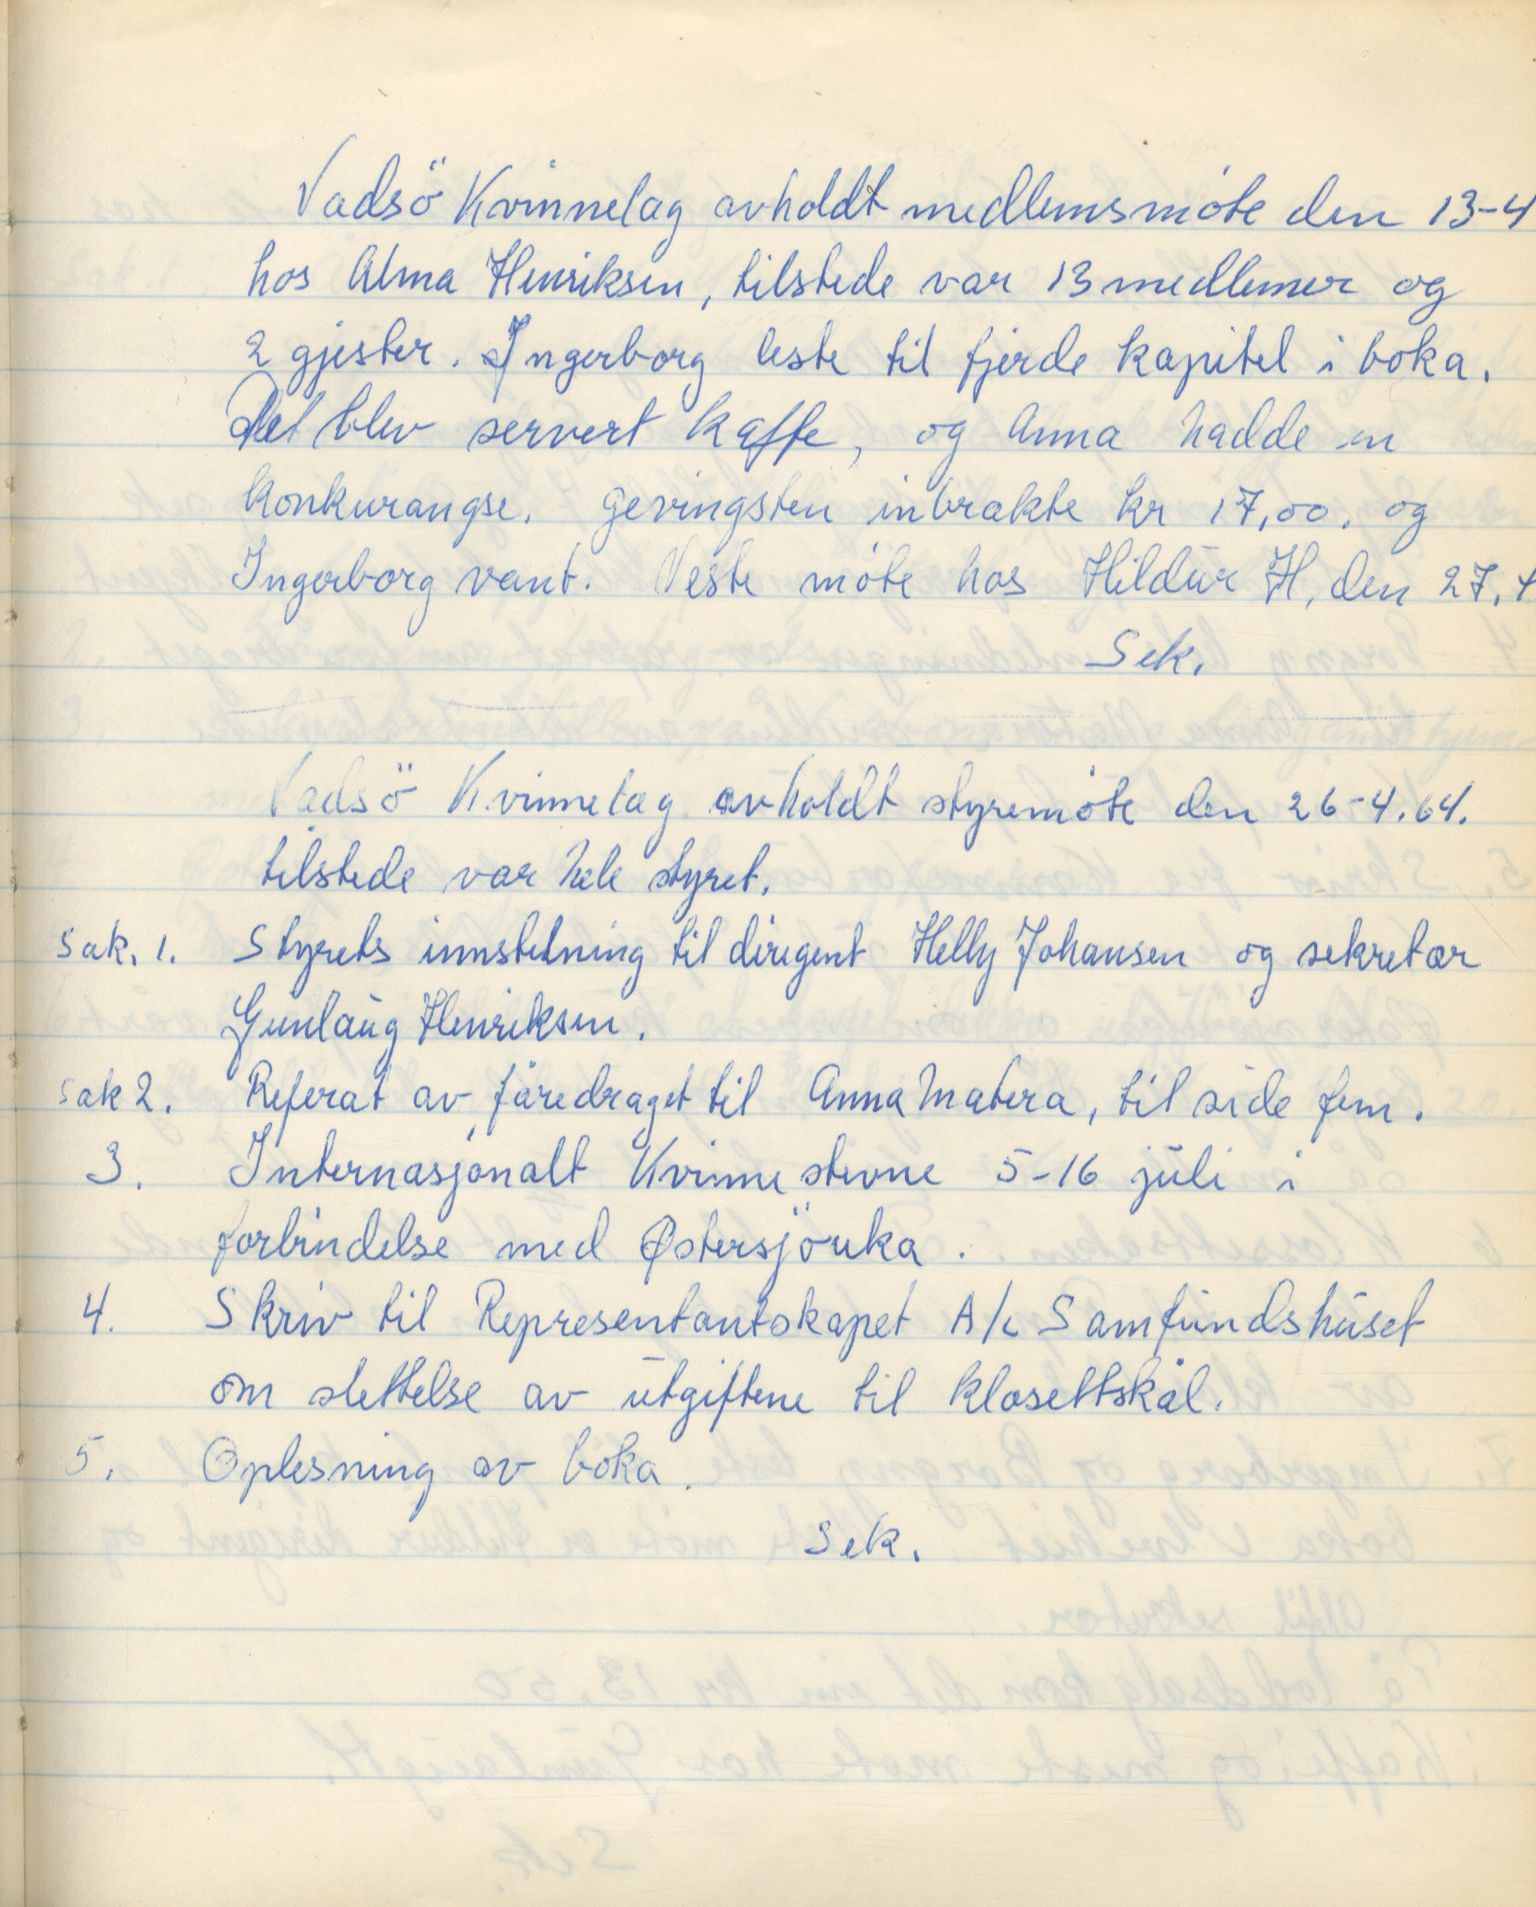 Vadsö Kvinnelag avholdt medlemsmöte den 13-4
hos Alma Henriksen, tilstede var 13 medlemer og
2 gjester. Ingerborg leste til fjerde kapitel i boka.
Det blev servert kaffe, og Anna hadde en
konkurangse. gevingsten inbrakte kr 17,00. og
Ingerborg vant. Neste möte hos Hildur H, den 27.4
Sek.
Vadsö Kvinnelag avholdt styremöte den 26-4.64.
tilstede var hele styret.
Sak. 1. Styrets innstelning til dirigent Helly Johansen og sekretær
Gunlaug Henriksen.
Sak 2. Referat av foredraget til Anna Matera, til side fem.
3. Internasjonalt Kvinnestevne 5-16 juli i
forbindelse med Østersjöuka.
4. Skriv til Representantskapet A/L Samfundshuset
om slettelse av utgiftene til klosettskål.
5. Oplesning av boka.
Sek.